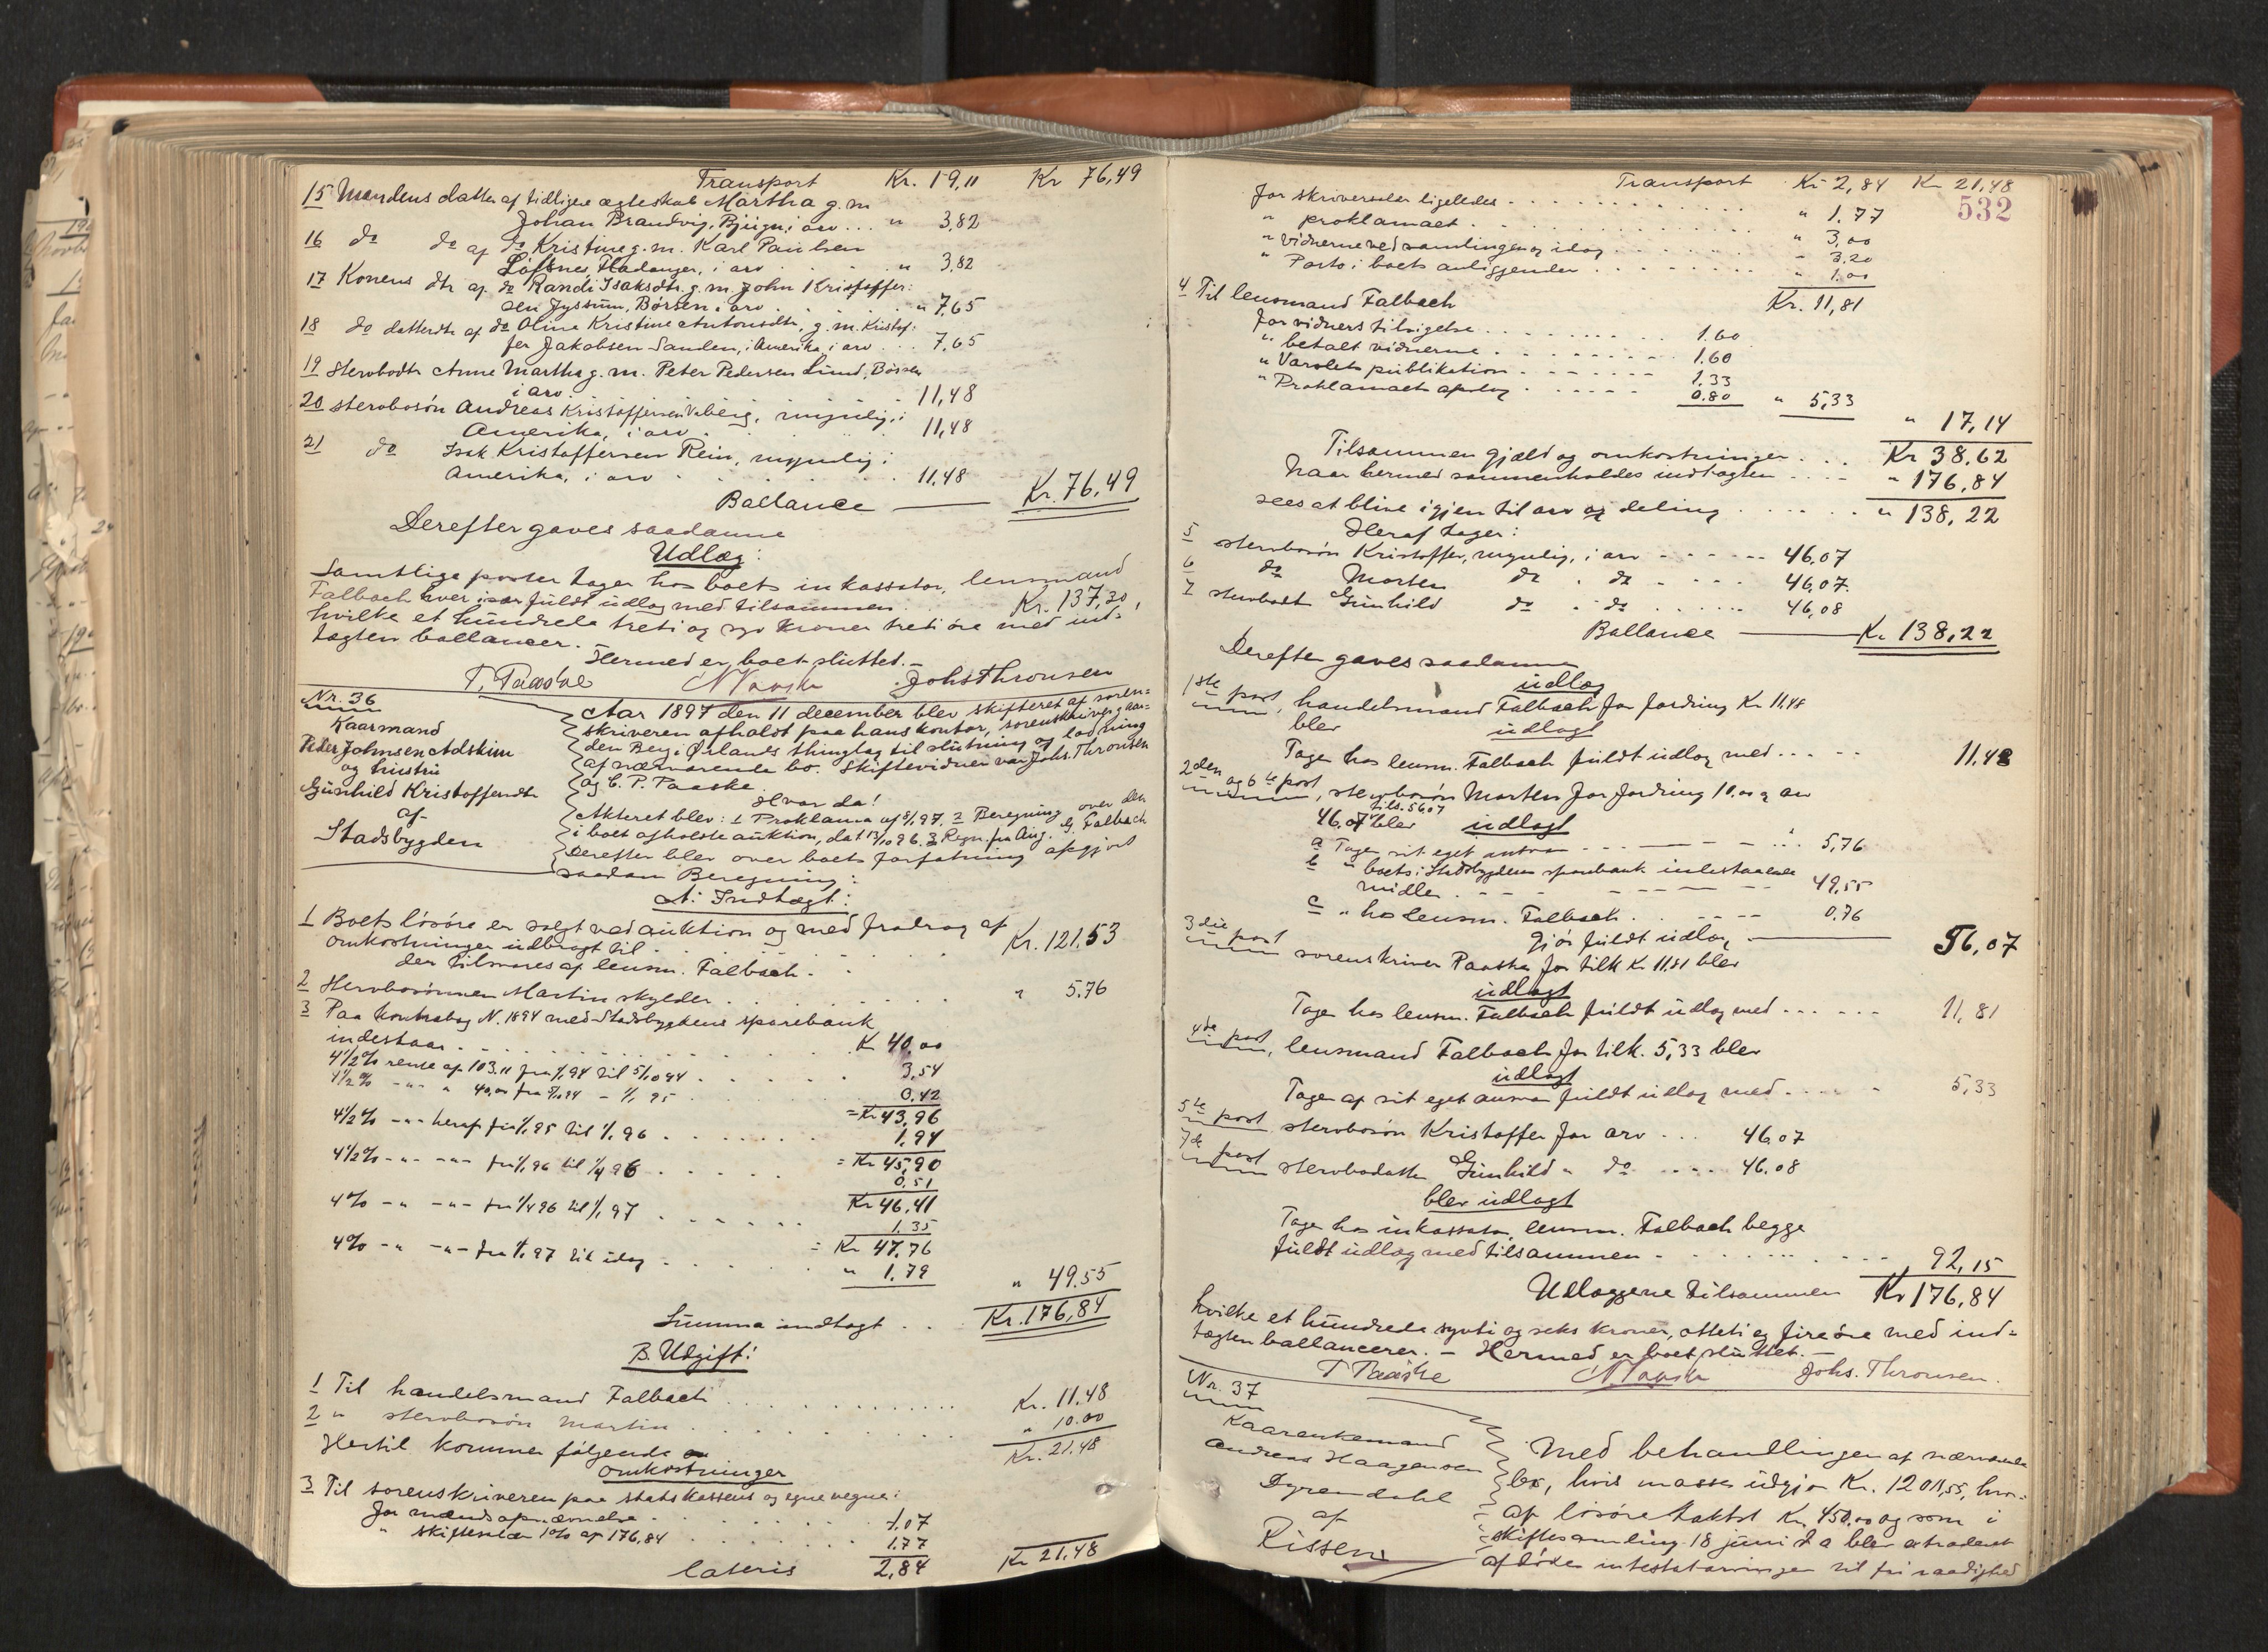 Transport Kr. 19,11 Kr 76,49
15 Mandens datter af tidligere ægteskab Martha g. m.
Johan Brandvig, Bjugn, i arv ... " 3,82
16 do do af do Kristine g. m. Karl Paulsen
Løfsnes, Fladanger, i arv . . . " 3,82
17 Konens dtr af do Randi Isaksdtr. g. m. John Kristoffer-
sen Jyssum, Børsen, i arv . . . " 7,65
18 do datterdtr af do Oline Kristine Antonsdtr, g. m. Kristof-
fer Jakobsen Sanden, i Amerika, i arv ... 7,65
19 Stervbodtr Anne Martha g. m. Peter Pedersen Lund, Børsen
i arv . . . 11,48
20 stervbosøn Andreas Kristoffersen Vaberg, myndig, i
Amerika, i arv . . . 11,48
21 do Isak Kristoffersen Rein, myndig i
Amerika, i arv . . . 11,48 Kr. 76,49
Ballance
Derefter gaves saadanne
Udlæg:
Samtlige poster tager hos boets inkassator, lensmand
Falbach hver især fuldt udlæg med tilsammen . Kr. 137,30,
hvilke et hundrede treti og syv kroner treti øre med ind-
tægten ballancer.
Hermed er boet sluttet. –
T. Paaske N Paaske Johs Thronsen
Nr. 36
Kaarmand
Peder Johnsen Adskim
og hustru
Gunhild Kristoffersdtr
af
Stadsbygden
Aar 1897 den 11 december blev skifteret af soren-
skriveren afholdt paa hans kontor, sorenskrivergaar-
den Berg i Ørlands thinglag til slutning og lodning
af nærværende bo. Skiftevidner var Johs. Thronsen
og C. P. Paaske.
Hvor da!
Akteret blev: 1 Proklama af 8/1 97. 2 Beregning over den
i boet afholdte auktion, dat 13/10 96. 3 Regn. fra Aug. G. Falbach
Derefter blev over boets forfatning afgjort
saadan Beregning:
A: Indtægt:
1 Boets løsøre er solgt ved auktion og med fradrag af
omkostninger udbragt til . . . Kr. 121.53
der tilsvares af lensm. Falbach .
2 Stervbosønnen Martin skylder . . . " 5,76
3 Paa kontrabog N. 1894 med Stadsbygdens sparebank
indestaar . . . Kr 40,00
4 1/2 % rente af 103.11 fra 1/1 94 til 5/10 94 . . . 3,54
4 1/2 % -"- " 40,00 fra 5/10 94 - 1/1 95 . . . 0,42
= Kr 43,96
4 1/2 % -"- heraf fra 1/1 95 til 1/1 96 . . . 1,94
= Kr 45,90
4 1/2 % -"- -"- fra 1/1 96 til 1/4 96 . . . 0,51
Kr 46,41
4 % -"- -"- fra 1/4 96 til 1/1 97 . . . 1,35
= Kr 47,76
4 % -" -"- fra 1/1 97 til idag . . . " 1.79
" 49.55
Summa indtægt . . Kr. 176,84
B. Udgift:
1 Til handelsmand Falbach . . . Kr. 11.48
2 " stervbosøn Martin . . . " 10.00
Hertil kommer følgende Kr. 21.48
omkostninger
3 Til sorenskriveren paa statskassens og egne vegne:
for mændsopnævnelse . . . 1.07
" skifteslær 1% af 176,84 . . . 1.77
lateris 2,84 Kr 21.48
Transport Kr 2,84 Kr 21,48
532
for skriversalær ligeledes . . . " 1.77
" proklamaet . . . " 3,00
" vidnerne ved samlingen og idag . . . " 3,20
" Porto i boets anliggender . . . " 1.00
Kr. 11,81
4 Til lensmand Falbach
for vidners tilsigelse . . . 1.60
" betalt vidnerne . . . 1.60
" Varslets publikation . . . 1.33
" Proklamaets opslag . . . 0.80 " 5,33
" 17,14
Tilsammen gjæld og omkostninger . . . Kr 38,62
Naar hermed sammenholdes indtægten . . . " 176,84
sees at blive igjen til arv og deling . . . " 138,22
Heraf tager:
5 stervbosøn Kristoffer, myndig, i arv . . . 46,07
6 do Morten do . do . . . 46,07.
7 stervbodt Gunhild do . do . . . 46,08
Ballance Kr 138,22
Derefter gaves saadanne
udlæg
1ste post, handelsmand Falbach for fordring Kr 11,48
blev udlagt
Tage hos lensm. Falbach fuldt udlæg med . . . 11,48
2den og 6te post, stervbosøn Morten for fordring 10.00 og arv
tils. 56.07
46.07 blev udlagt
a Tage sit eget ansvar . . . 5,76
b " boets i Stadsbygdens sparebank indestaaende
midler . . . 49,55
c " hos lensm. Falbach . . . 0.76
gjør fuldt udlæg 56,07
3die post sorenskriver Paaske for tilk Kr 11,81 blev
udlagt
Tage hos lensm. Falbach fuldt udlæg med . . . 11,81
4de post, lensmand Falbach for tilk. 5,33 blev
udlagt
Tage af sit eget ansvar fuldt udlæg med . . . 5,33
5te post stervbosøn Kristoffer for arv . . . 46,07
7de post stervbodatter Gunhild " do . . . 46.08
blev udlagt
Tage hos inkassator, lensm. Falbach begge
fuldt udlæg med tilsammen . . . 92,15
Udlæggene tilsammen Kr 176,84
hvilke et hundrede sytti og seks kroner, otteti og fire øre med ind-
tægten ballancerer. – Hermed er boet sluttet. –
T Paaske N Paaske Johs. Thronsen.
Nr. 37
Kaarenkemand
Andreas Haagensen
Dyrendahl
af
Rissen
Med behandlingen af nærværende
bo, hvis masse udgjør Kr. 1201,55, hvor-
af løsøre takst Kr. 450,00 og som i
skiftesamling 18 juni d a blev extraderet
afdødes intestatarvinger til fri raadighed